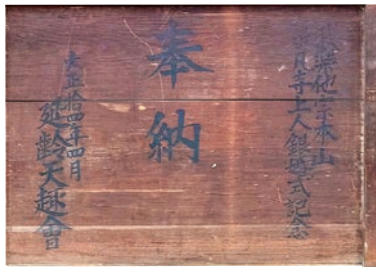 宗本山
寺上人銀婚式記念
奉納
大正拾四年四月
延齢天趣會